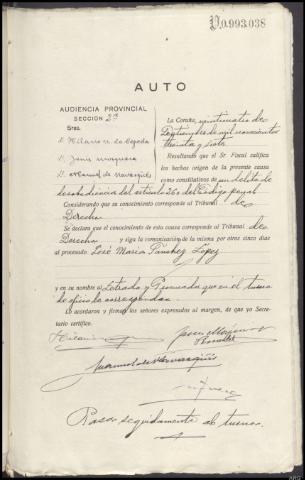 P.0.993.038
AUTO
AUDIENCIA PROVINCIAL
SECCION 2ª
Sres.
D. Hilario
D. Jesús
D. Manuel de Navasqüés
La Coruña, veintiuatro de
Septiembre de mil novecientos
treinta y siete
Resultando que el Sr. Fiscal califica
los hechos origen de la presente causa
como constitutivos de un delito de
desobediencia del artículo 260 del Código penal
Considerando que su conocimiento corresponde al Tribunal de
Derecho
Se declara que el conocimiento de esta causa corresponde al Tribunal de
Derecho y siga la comunicación de la misma por otros cinco días
al procesado José María Sánchez López
y en su nombre al Letrado y Procurador que en el turno
de oficio le corresponda.
Lo acordaron y firman los señores expresados al margen, de que yo Secre-
tario certifico.
Hilario
Manuel de Navasqüés
Pasa seguidamente al turno.